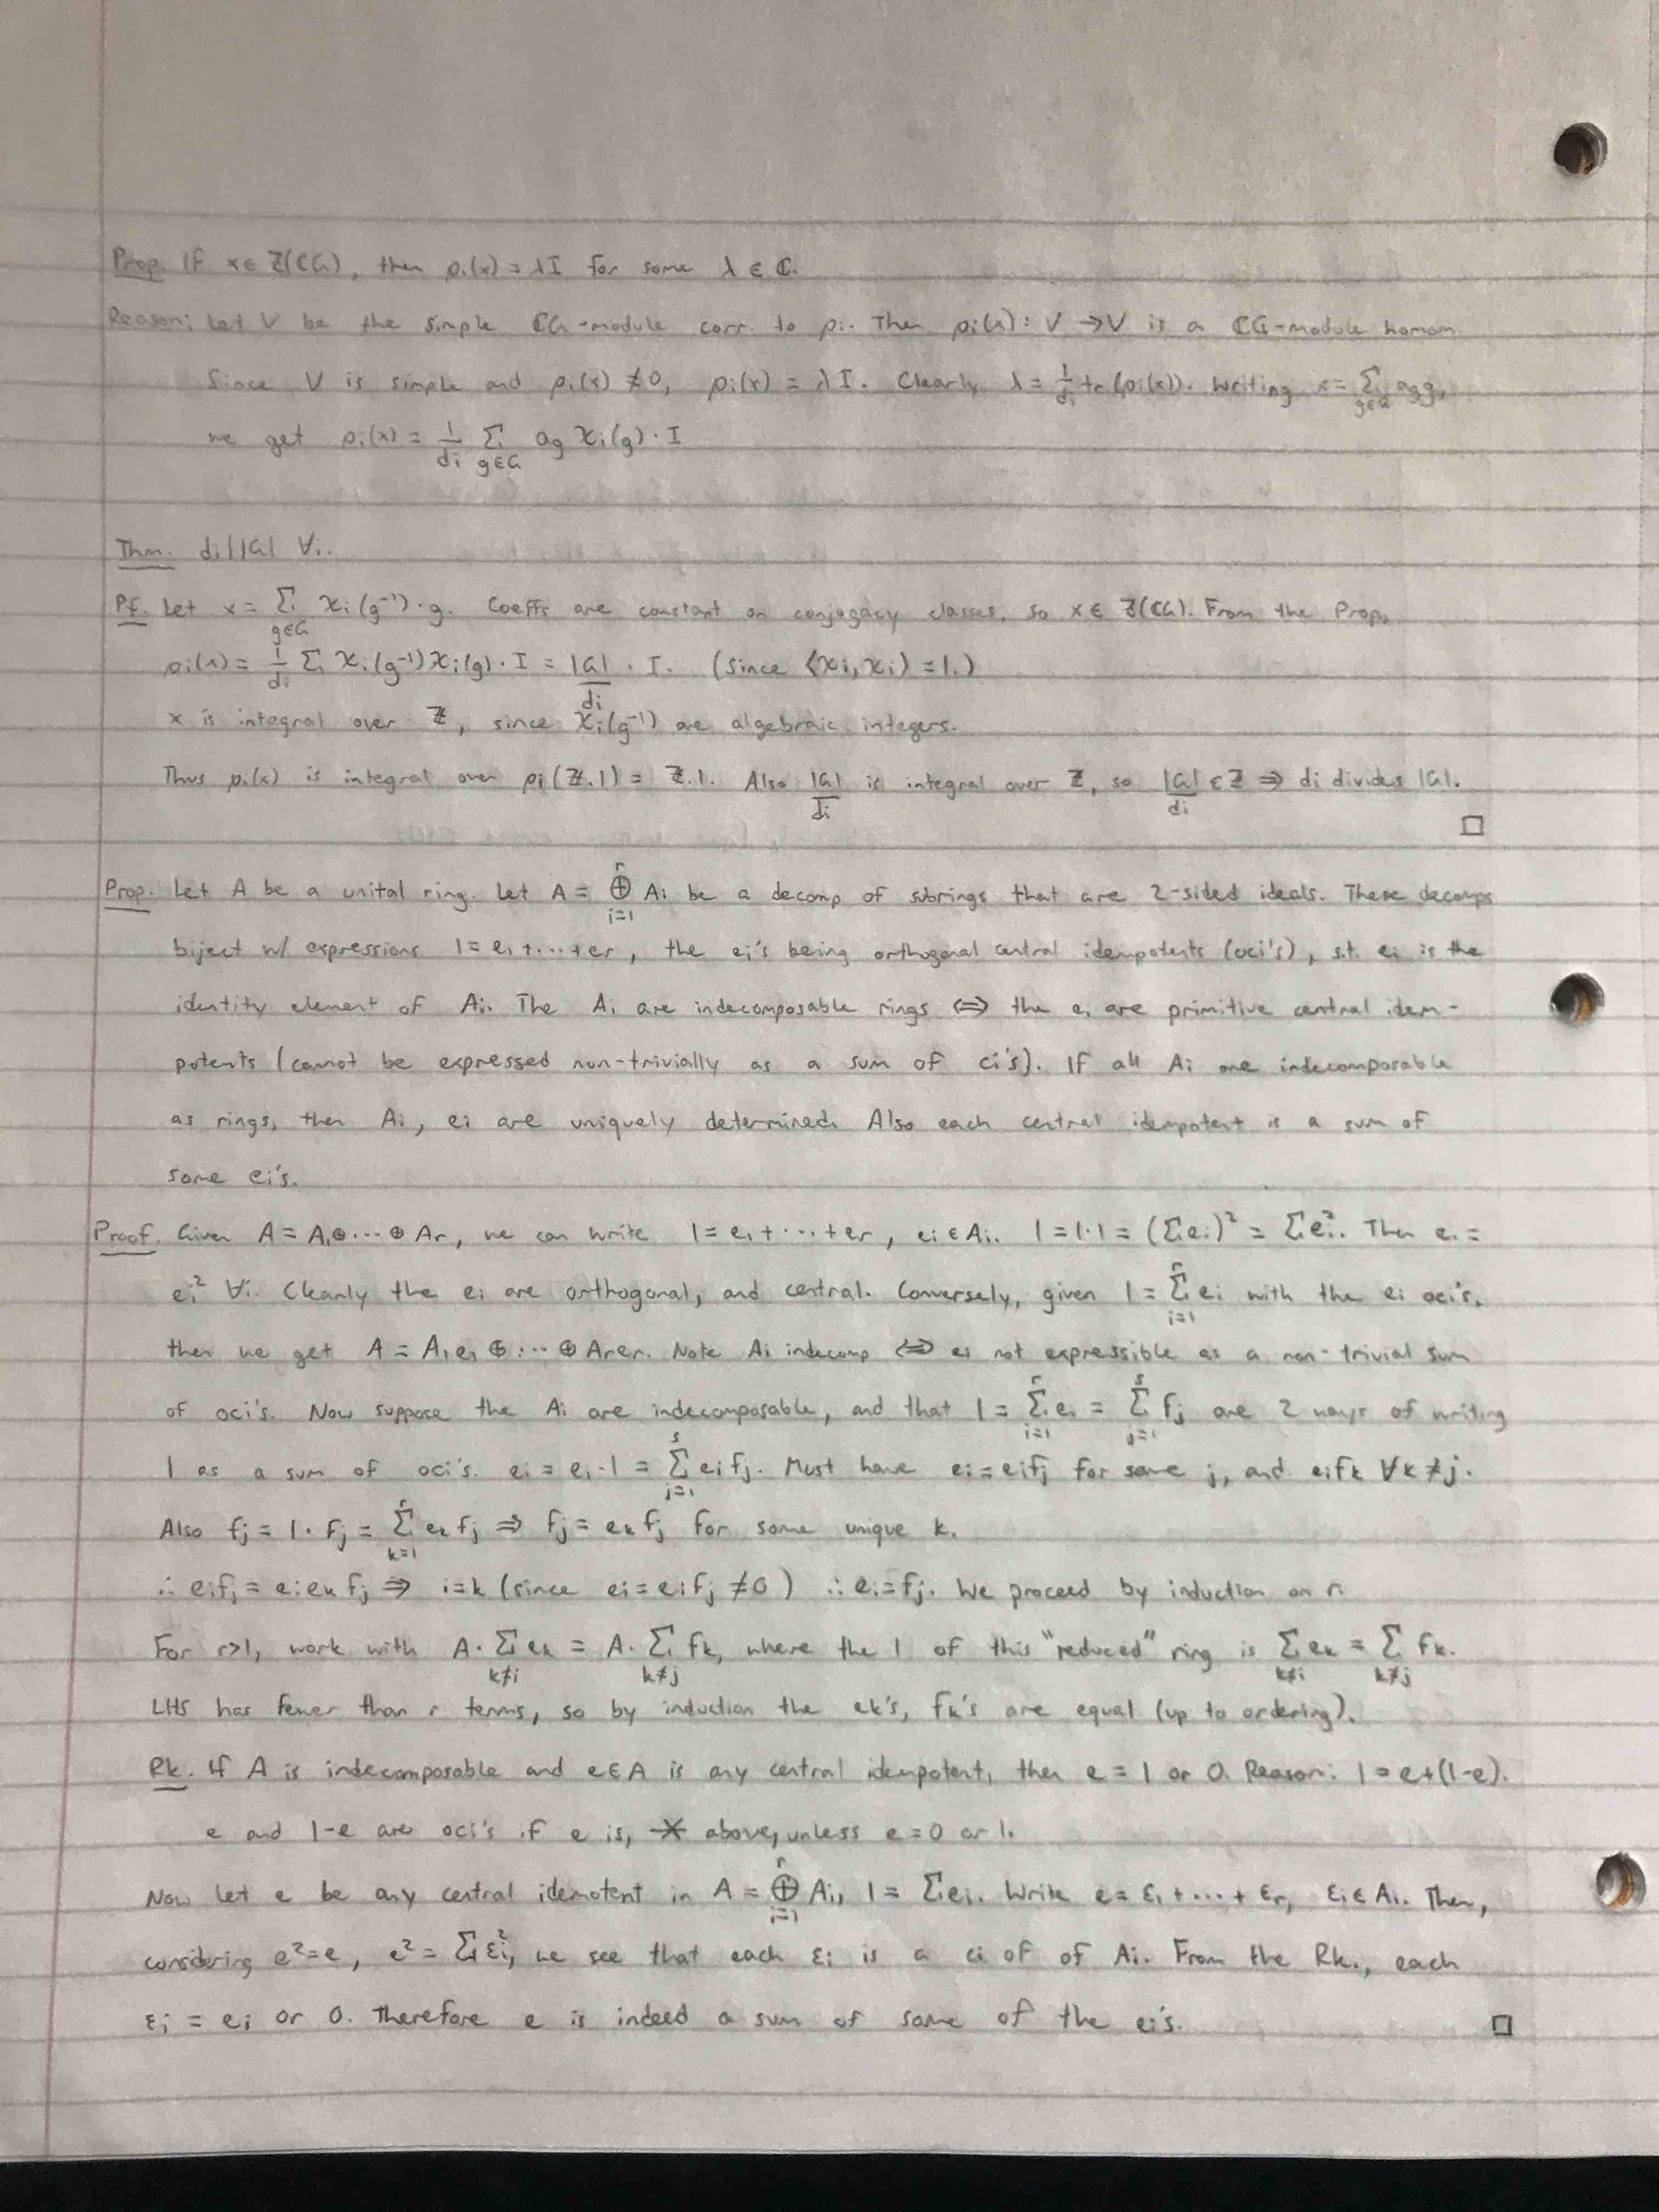 Prop. If x ∈ Z(ℂG), then ρi(x) = λI for some λ ∈ ℂ.
Reason: Let V be the simple ℂG-module corr. to ρi. Then ρi(x): V → V is a ℂG-module homom.
Since V is simple and ρi(x) ≠ 0, ρi(x) = λI. Clearly λ = 1/di tr(ρi(x)). Writing x = Σ_{g∈G} ag g,
we get ρi(x) = 1/di Σ_{g∈G} ag χi(g) · I
Thm. di | |G| ∀i.
Pf. Let x = Σ_{g∈G} χi(g⁻¹)·g. Coeffs are constant on conjugacy classes, so x ∈ Z(ℂG). From the Prop,
ρi(x) = 1/di Σ χi(g⁻¹)χi(g) · I = |G|/di · I. (since ⟨χi, χi⟩ = 1.)
x is integral over ℤ, since χi(g⁻¹) are algebraic integers.
Thus ρi(x) is integral over ρi(ℤ.1) = ℤ.1. Also |G|/di is integral over ℤ, so |G|/di ∈ ℤ ⇒ di divides |G|.
□
Prop. Let A be a unital ring. Let A = ⊕_{i=1}^{r} Ai be a decomp of subrings that are 2-sided ideals. These decomps
biject w/ expressions 1 = e1 + ... + er, the ei's being orthogonal central idempotents (oci's), s.t. ei is the
identity element of Ai. The Ai are indecomposable rings ⇔ the ei are primitive central idem-
potents (cannot be expressed non-trivially as a sum of ci's). If all Ai are indecomposable
as rings, then Ai, ei are uniquely determined. Also each central idempotent is a sum of
some ei's.
Proof. Given A = A1⊕...⊕Ar, we can write 1 = e1 + ... + er, ei ∈ Ai. 1 = 1·1 = (Σei)² = Σei². Then ei =
ei² ∀i. Clearly the ei are orthogonal, and central. Conversely, given 1 = Σ_{i=1}^{r} ei with the ei oci's,
then we get A = A1e1 ⊕ ... ⊕ Arer. Note Ai indecomp ⇔ ei not expressible as a non-trivial sum
of oci's. Now suppose the Ai are indecomposable, and that 1 = Σ_{i=1}^{r} ei = Σ_{j=1}^{s} fj are 2 ways of writing
1 as a sum of oci's. ei = ei·1 = Σ_{j=1}^{s} eifj. Must have ei = eifj for some j, and eifk ∀k≠j.
Also fj = 1·fj = Σ_{k=1}^{r} ekfj ⇒ fj = ekfj for some unique k.
∴ eifj = eiekfj ⇒ i=k (since ei = eifj ≠ 0) ∴ ei = fj. We proceed by induction on r.
For r>1, work with A·Σ_{k≠i} ek = A·Σ_{k≠j} fk, where the 1 of this "reduced" ring is Σ_{k≠i} ek = Σ_{k≠j} fk.
LHS has fewer than r terms, so by induction the ek's, fk's are equal (up to ordering).
Rk. If A is indecomposable and e∈A is any central idempotent, then e = 1 or 0. Reason: 1 = e+(1-e).
e and 1-e are oci's if e is, ※ above, unless e=0 or 1.
Now let e be any central idemotent in A = ⊕_{i=1}^{r} Ai, 1 = Σei. Write e = ε1 + ... + εr, εi ∈ Ai. Then,
considering e²=e, e² = Σεi², we see that each εi is a ci of of Ai. From the Rk., each
εi = ei or 0. Therefore e is indeed a sum of some of the ei's.
□